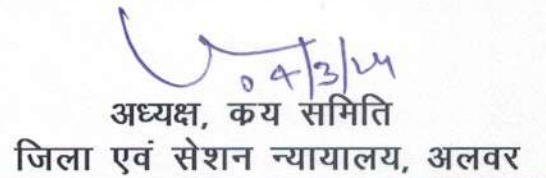 04/3/24
अध्यक्ष, कय समिति
जिला एवं सेशन न्यायालय, अलवर